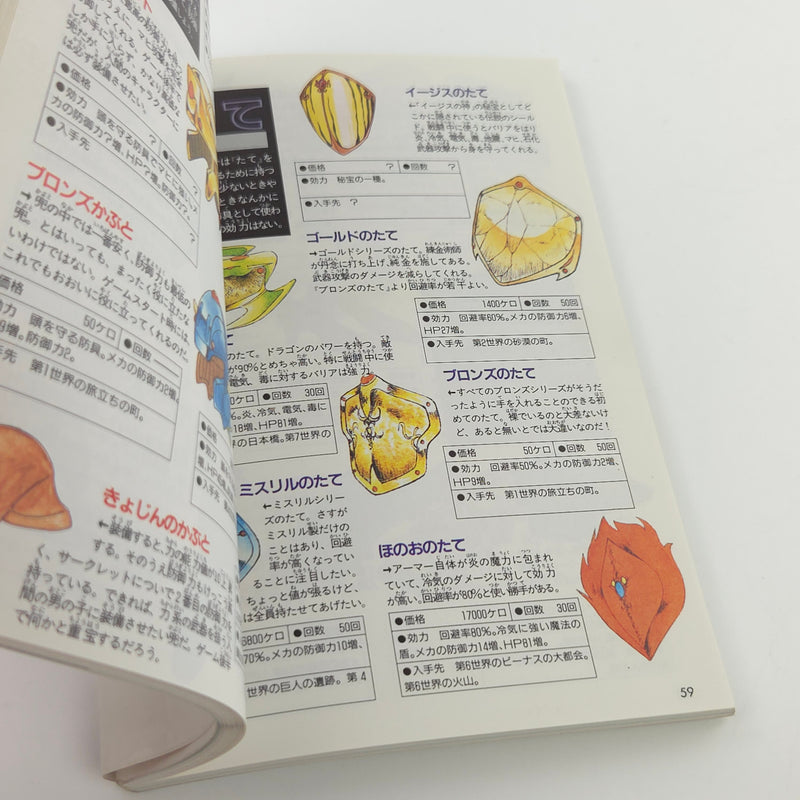 イージスのたて
←『イージスの神』の秘宝としてど
こかに隠されている伝説のシール
ド。戦闘中に使うとバリアをはり
炎、冷気、電気、毒、地震、マヒ、石化
武器攻撃から身を守ってくれる。
●価格 ? ●回数 ?
●効力 秘宝の一種。
●入手先 ?
て
は『たて』を
るために持つ
少ないときや
ときなんかに
具として使わ
の効力はない。
ゴールドのたて
→ゴールドシリーズのたて。錬金術師
が丹念に打ち上げ、純金を施してある。
武器攻撃のダメージを減らしてくれる。
『ブロンズのたて』より回避率が若干よい。
●価格 1400ケロ ●回数 50回
●効力 回避率60%。メカの防御力6増、
HP27増。
●入手先 第2世界の砂漠の町。
のたて。ドラゴンのパワーを持つ。敵
が90%とめちゃ高い。特に戦闘中に使
電気、毒に対するバリアは強力
ケロ ●回数 30回
%。炎、冷気、電気、毒に
18増、HP81増。
の日本橋。第7世界の
ブロンズのたて
←すべてのブロンズシリーズがそうだ
ったように手を入れることのできる初
めてのたて。裸でいるのと大差ないけ
ど、あると無いとでは大違いなのだ!
●価格 50ケロ ●回数 50回
●効力 回避率50%。メカの防御力2増、
HP9増。
●入手先 第1世界の旅立ちの町。
ミスリルのたて
←ミスリルシリー
ズのたて。さすが
ミスリル製だけの
ことはあり、回避
率が高くなってい
ることに注目したい。
ちょっと値が張るけど、
は全員持たせてあげたい。
6800ケロ ●回数 50回
70%。メカの防御力10増、
世界の巨人の遺跡。第4
ほのおのたて
→アーマー自体が炎の魔力に包まれ
ていて、冷気のダメージに対して効力
が高い。回避率が80%と使い勝手がある。
●価格 17000ケロ ●回数 30回
●効力 回避率80%。冷気に強い魔法の
盾。メカの防御力14増、HP81増。
●入手先 第6世界のビーナスの大都会。
第6世界の火山。
59
は必ず装備させたい。
●価格 ? ●回数 ?
●効力 頭を守る防具。
力の防御力?増、HP?増。
●入手先 ?
ブロンズかぶと
→兜の中では一番安く、防御力も最低の
兜。とはいっても、まったく役に立たな
いわけではない。ゲームスタート時には、
これでもおおいに役に立ってくれるのだ。
●価格 50ケロ ●回数
●効力 頭を守る防具。メカの防御力2増
増。防御力2。
●入手先 第1世界の旅立ちの町。
きょじんのかぶと
←装備すると、力の能力値が
する。そのうえ防御力もけっ
く、サークレットについで2番目の
持っている。できれば、力系の武器を扱う人
間の男の子に装備させたい兜だ。ゲーム後半
で何かと重宝するだろう。